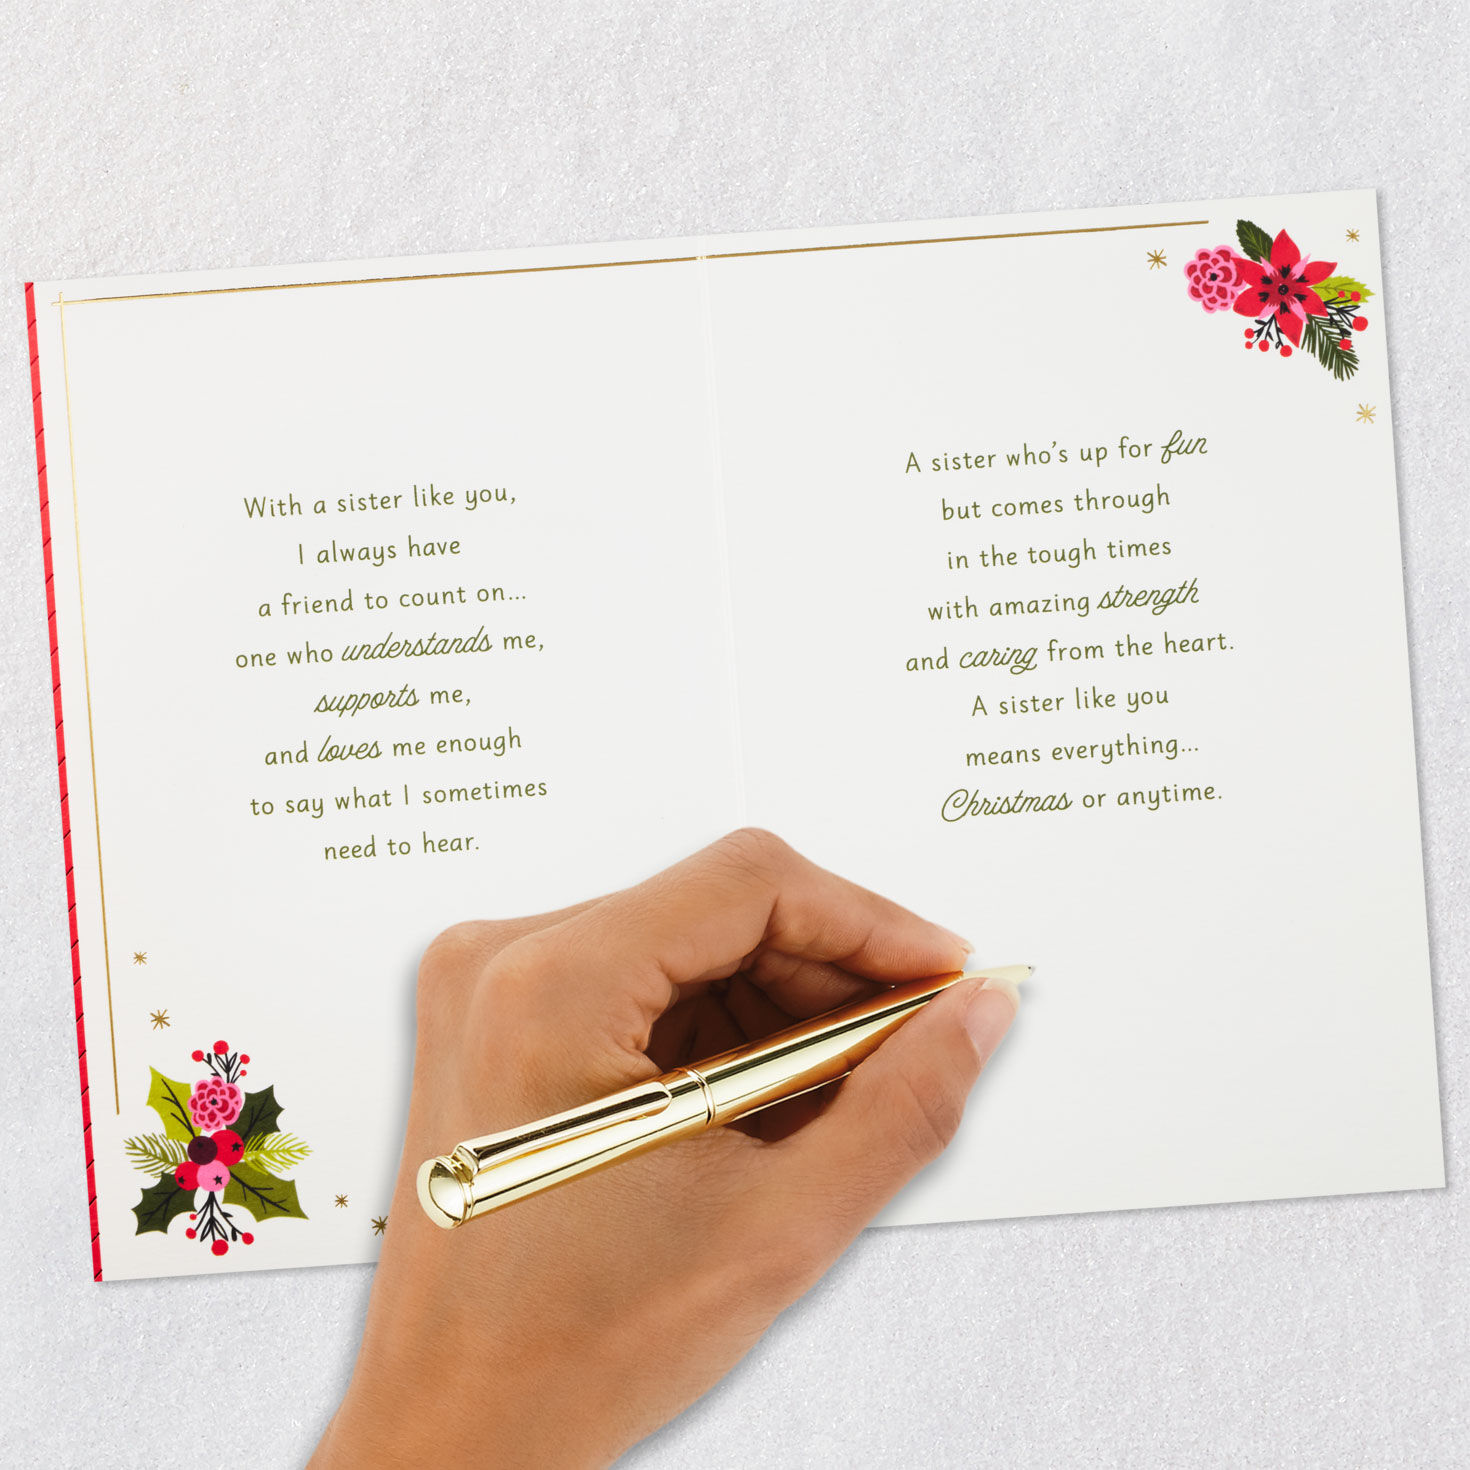 With a sister like you,
I always have
a friend to count on...
one who understands me,
supports me,
and loves me enough
to say what I sometimes
need to hear.
A sister who's up for fun
but comes through
in the tough times
with amazing strength
and caring from the heart.
A sister like you
means everything...
Christmas or anytime.